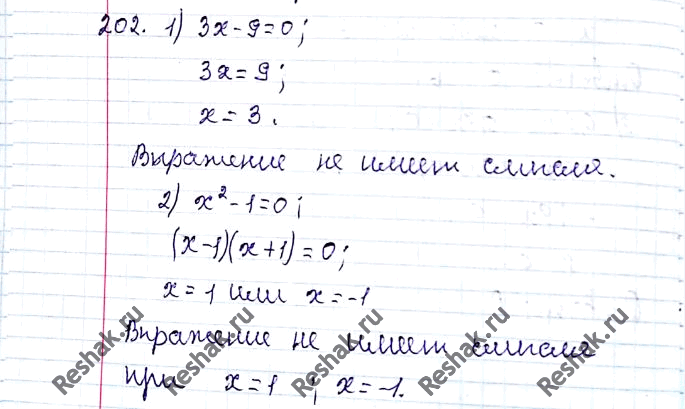 202. 1) 3x-9=0;
3x=9;
x=3.
Выражение не имеет смысла.
2) x²-1=0;
(x-1)(x+1)=0;
x=1 или x=-1
Выражение не имеет смысла
при x=1 ; x=-1.
Reshak.ru Reshak.ru Reshak.ru Reshak.ru Reshak.ru